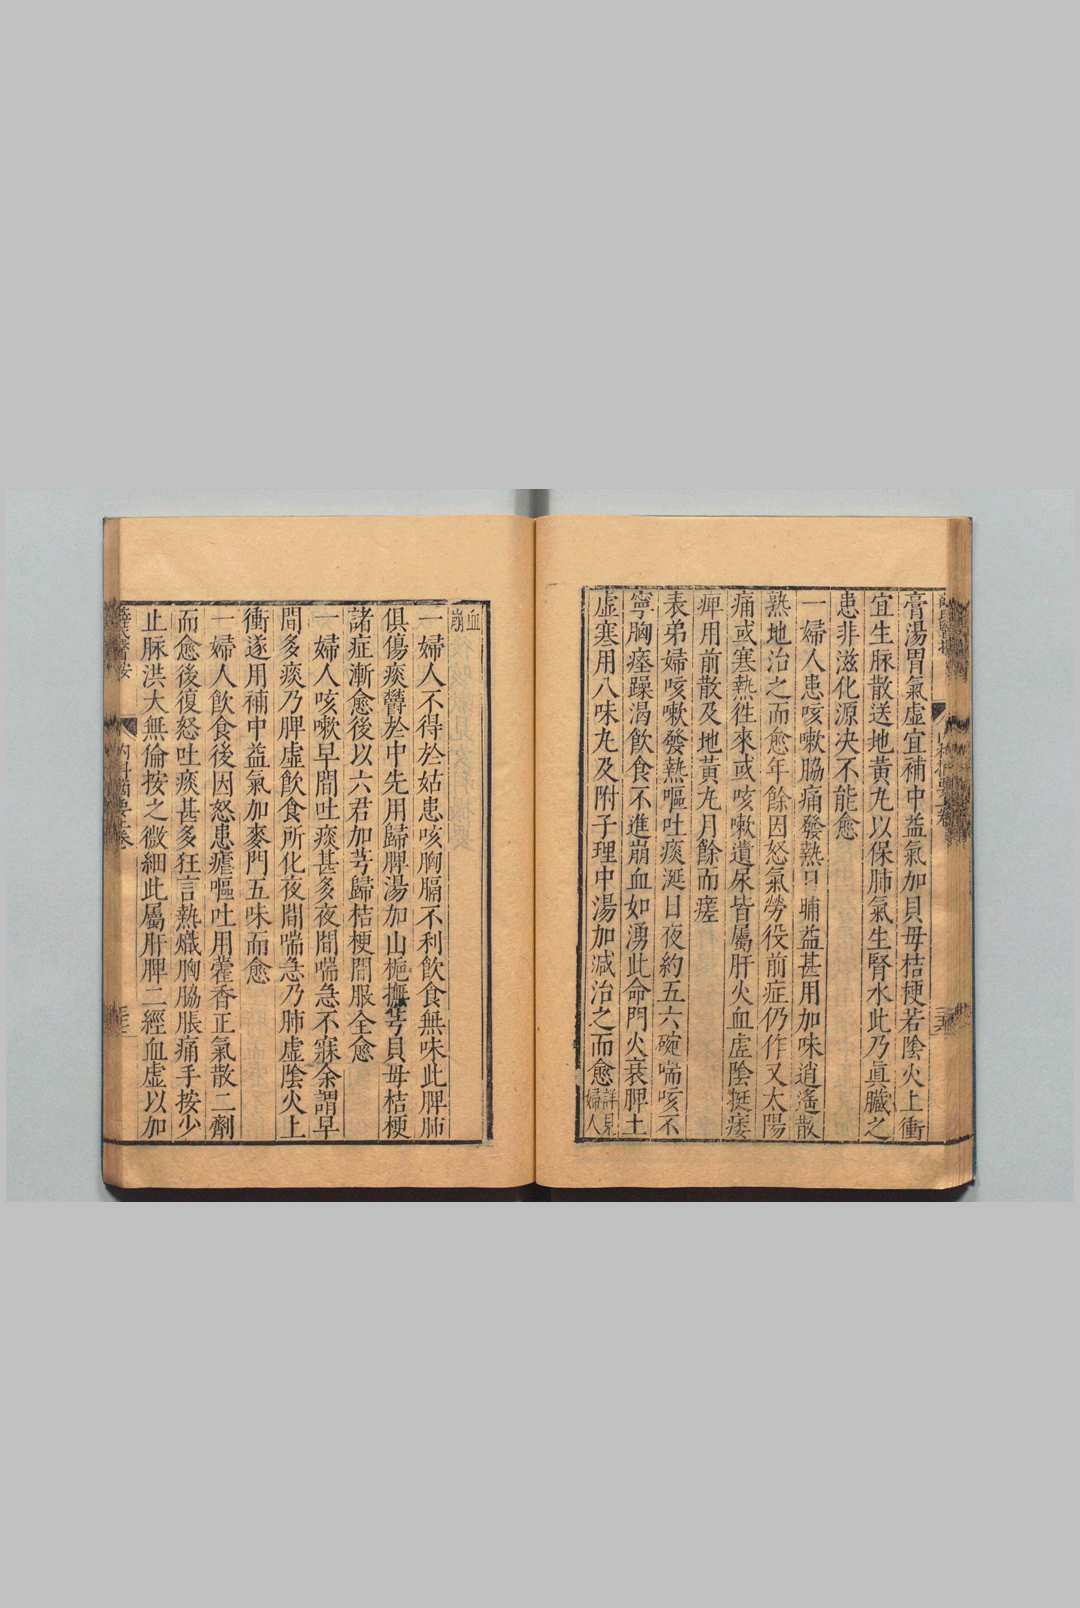 膏湯胃氣虛宜補中益氣加貝母桔梗若陰火上衝
宜生脉散送地黃丸以保肺氣生腎水此乃眞臟之
患非滋化源決不能愈
一婦人患咳嗽脇痛發熱日晡益甚用加味逍遙散
熟地治之而愈年餘因怒氣勞役前症仍作又太陽
痛或寒熱徃來或咳嗽遺尿皆屬肝火血虛陰挺痿
痺用前散及地黃丸月餘而瘥
表弟婦咳嗽發熱嘔吐痰涎日夜約五六碗喘咳不
寧胸痞躁渴飲食不進崩血如湧此命門火衰脾土
虛寒用八味丸及附子理中湯加减治之而愈詳見
婦人
血
崩
一婦人不得於姑患咳胸膈不利飲食無味此脾肺
俱傷痰欝於中先用歸脾湯加山梔撫芎貝母桔梗
諸症漸愈後以六君加芎歸桔梗間服全愈
一婦人咳嗽早間吐痰甚多夜間喘急不寐余謂早
間多痰乃脾虛飲食所化夜間喘急乃肺虛陰火上
衝遂用補中益氣加麥門五味而愈
一婦人飲食後因怒患瘧嘔吐用藿香正氣散二劑
而愈後復怒吐痰甚多狂言熱熾胸脇脹痛手按少
止脉洪大無倫按之微細此屬肝脾二經血虛以加